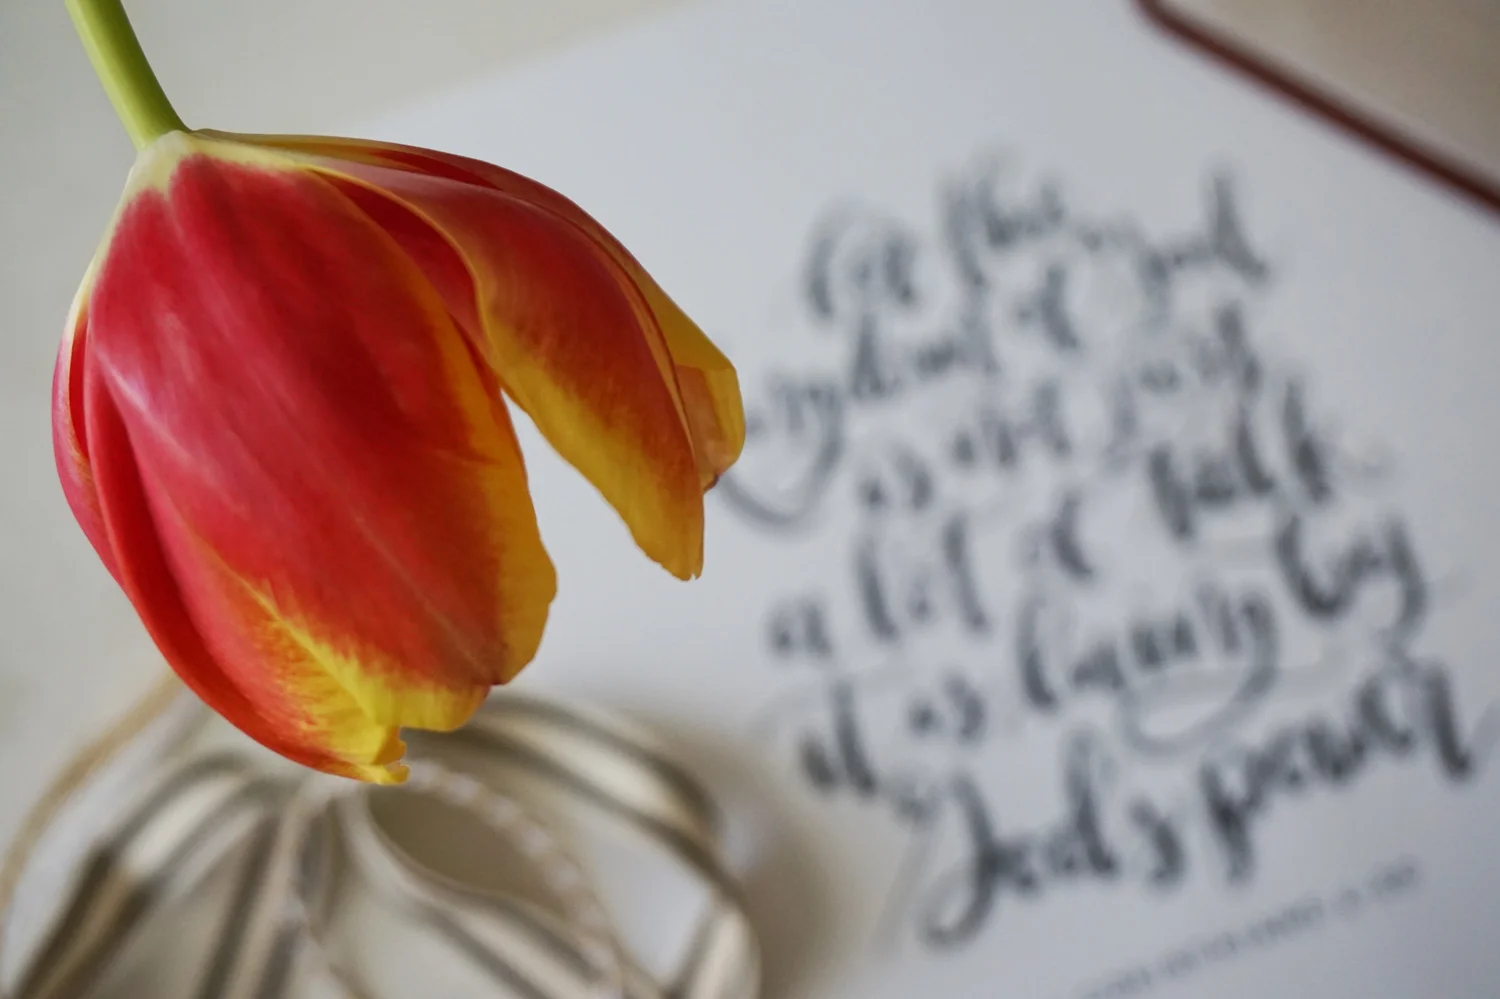 For the
kingdom of God
is not just
a lot of talk
it is living by
God's power